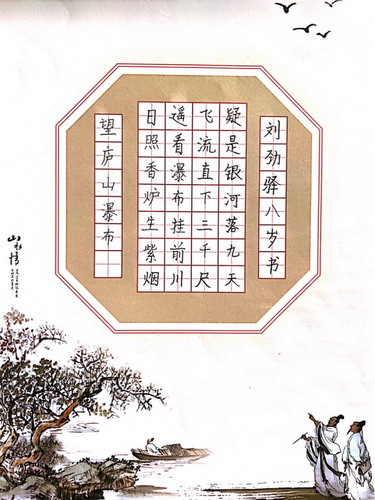 望庐山瀑布
日照香炉生紫烟
遥看瀑布挂前川
飞流直下三千尺
疑是银河落九天
刘劲驿八岁书
山水情